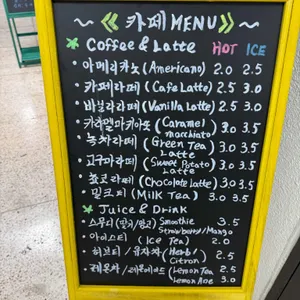 카페 MENU
Coffee & Latte HOT ICE
아메리카노 (Americano) 2.0 2.5
카페라떼 (Cafe Latte) 2.5 3.0
바닐라라떼 (Vanilla Latte) 2.5 3.0
카라멜마키아또 (Caramel macchiato) 3.0 3.5
녹차라떼 (Green Tea Latte) 3.0 3.5
고구마라떼 (Sweet Potato Latte) 3.0 3.5
쵸코라떼 (Chocolate Latte) 3.0 3.5
밀크티 (Milk Tea) 3.0 3.5
Juice & Drink
스무디 (딸기/망고) Smoothie Strawberry/Mango 3.5
아이스티 (Ice Tea) 2.0
허브티 / 유자차 (Herb/ Citron) 2.5
레몬차 / 레몬에이드 (Lemon Tea 2.5
Lemon Ade 3.0